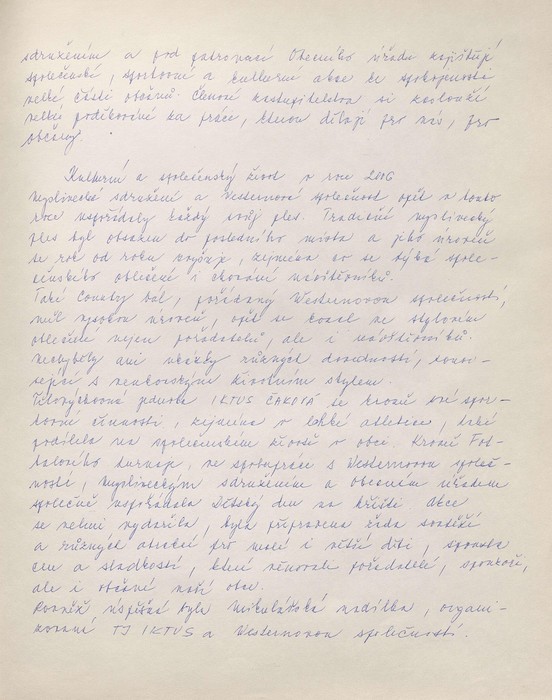 sdružením a pod patronací Obecního úřadu zajišťují
společenské, sportovní a kulturní akce ke spokojenosti
velké části občanů. Členové zastupitelstva si zaslouží
velké poděkování za práci, kterou dělají pro nás, pro
občany.
Kulturní a společenský život v roce 2006
Myslivecké sdružení a Westernová společnost opět v tomto
roce uspořádaly každý svůj ples. Tradičně myslivecký
ples byl obsazen do posledního místa a jeho úroveň
se rok od roku zvyšuje, zejména co se týká spole-
čenského oblečení i chování návštěvníků.
Také Country bál, pořádaný Westernovou společností,
měl vysokou úroveň, opět se konal ve stylovém
oblečení nejen pořadatelů, ale i návštěvníků.
Nechyběly ani ukázky různých dovedností, souvi-
sející s venkovským životním stylem.
Tělovýchovná jednota IKTUS ČAKOVÁ se kromě své spor-
tovní činnosti, zejména v lehké atletice, také
podílela na společenském životě v obci. Kromě Fot-
balového turnaje, ve spolupráci s Westernovou společ-
ností, Mysliveckým sdružením a obecním úřadem
společně uspořádala Dětský den na hřišti. Akce
se velmi vydařila, byla připravena řada soutěží
a různých atrakcí pro malé i větší děti, spousta
cen a sladkostí, které věnovali pořadatelé, sponzoři,
ale i občané naší obce.
Rovněž úspěšná byla Mikulášská nadílka, organi-
zovaná TJ IKTUS a Westernovou společností.